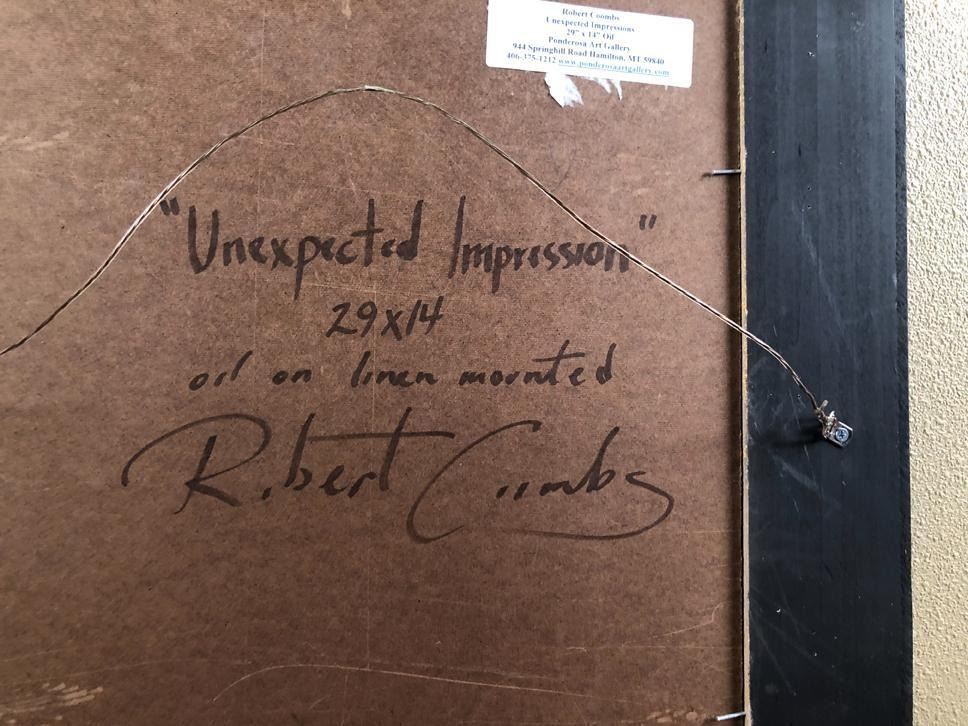 Robert Coombs
Unexpected Impressions
29" x 14" Oil
Ponderosa Art Gallery
944 Springhill Road Hamilton, MT 59840
406-375-1212 www.ponderosaartgallery.com
"Unexpected Impression"
29x14
oil on linen mounted
Robert Coombs